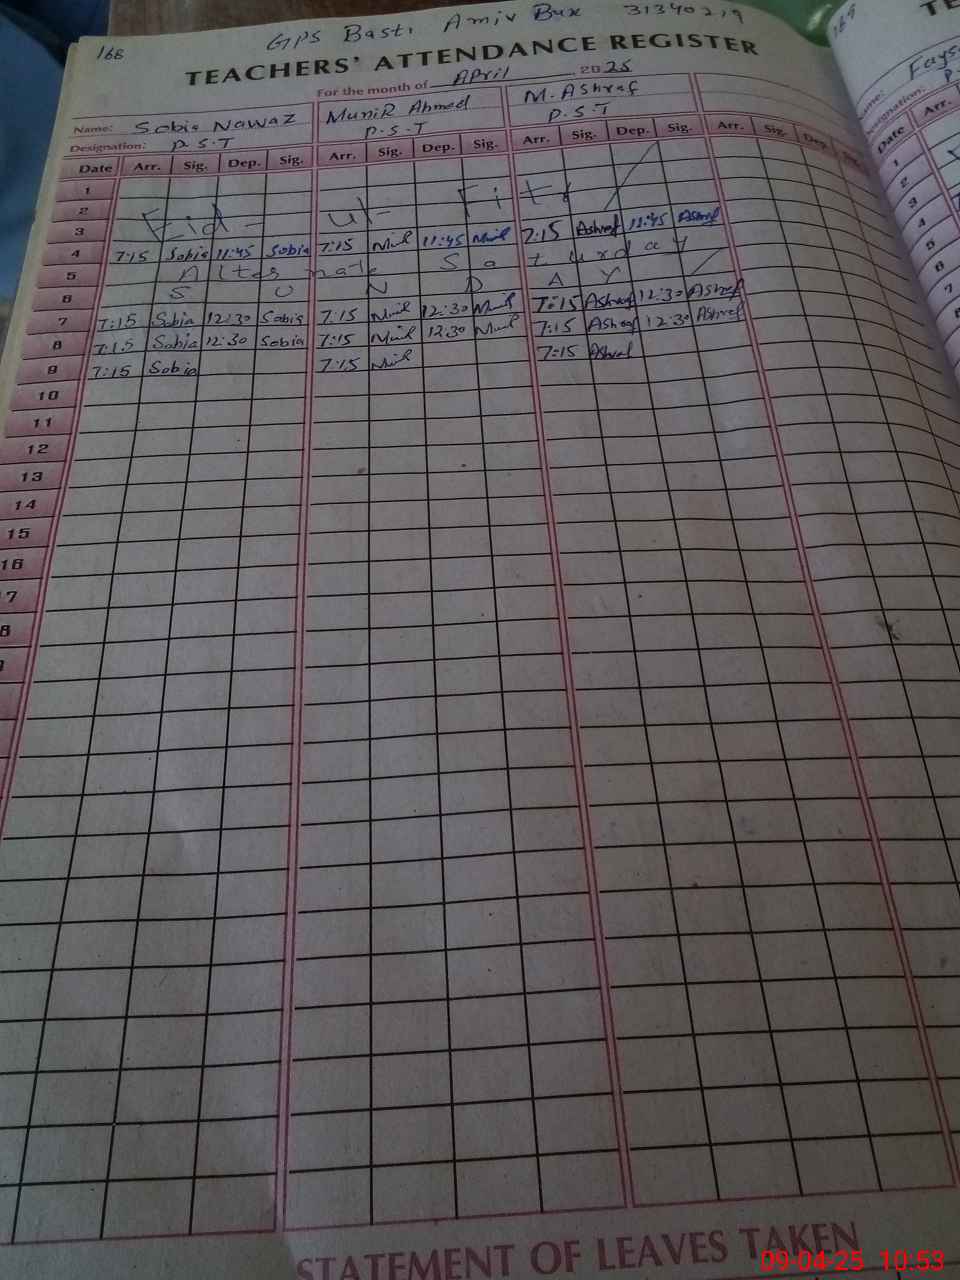 168
GPS Basti Amir Bux 31340219
TEACHERS' ATTENDANCE REGISTER
For the month of April 2025
Name: Sobia Nawaz Munir Ahmed M. Ashraf
Designation: P.S.T P.S.T P.S.T
Date Arr. Sig. Dep. Sig. Arr. Sig. Dep. Sig. Arr. Sig. Dep. Sig. Arr. Sig. Dep. Sig.
1
2 Eid - ul - Fitr
3
4 7:15 Sobia 11:45 Sobia 7:15 11:45 7:15 Ashraf 11:45 Ashraf
5 Alternate Saturday
6 S U N D A Y
7 7:15 Sobia 12:30 Sobia 7:15 12:30 7:15 Ashraf 12:30 Ashraf
8 7:15 Sobia 12:30 Sobia 7:15 12:30 7:15 Ashraf 12:30 Ashraf
9 7:15 Sobia 7:15 7:15 Ashraf
10
11
12
13
14
15
16
7
8
STATEMENT OF LEAVES TAKEN
169
TE
Fays
P.
Name:
Designation:
Date Arr.
1
2
3
4
5
6
7
8
09-04-25 10:53